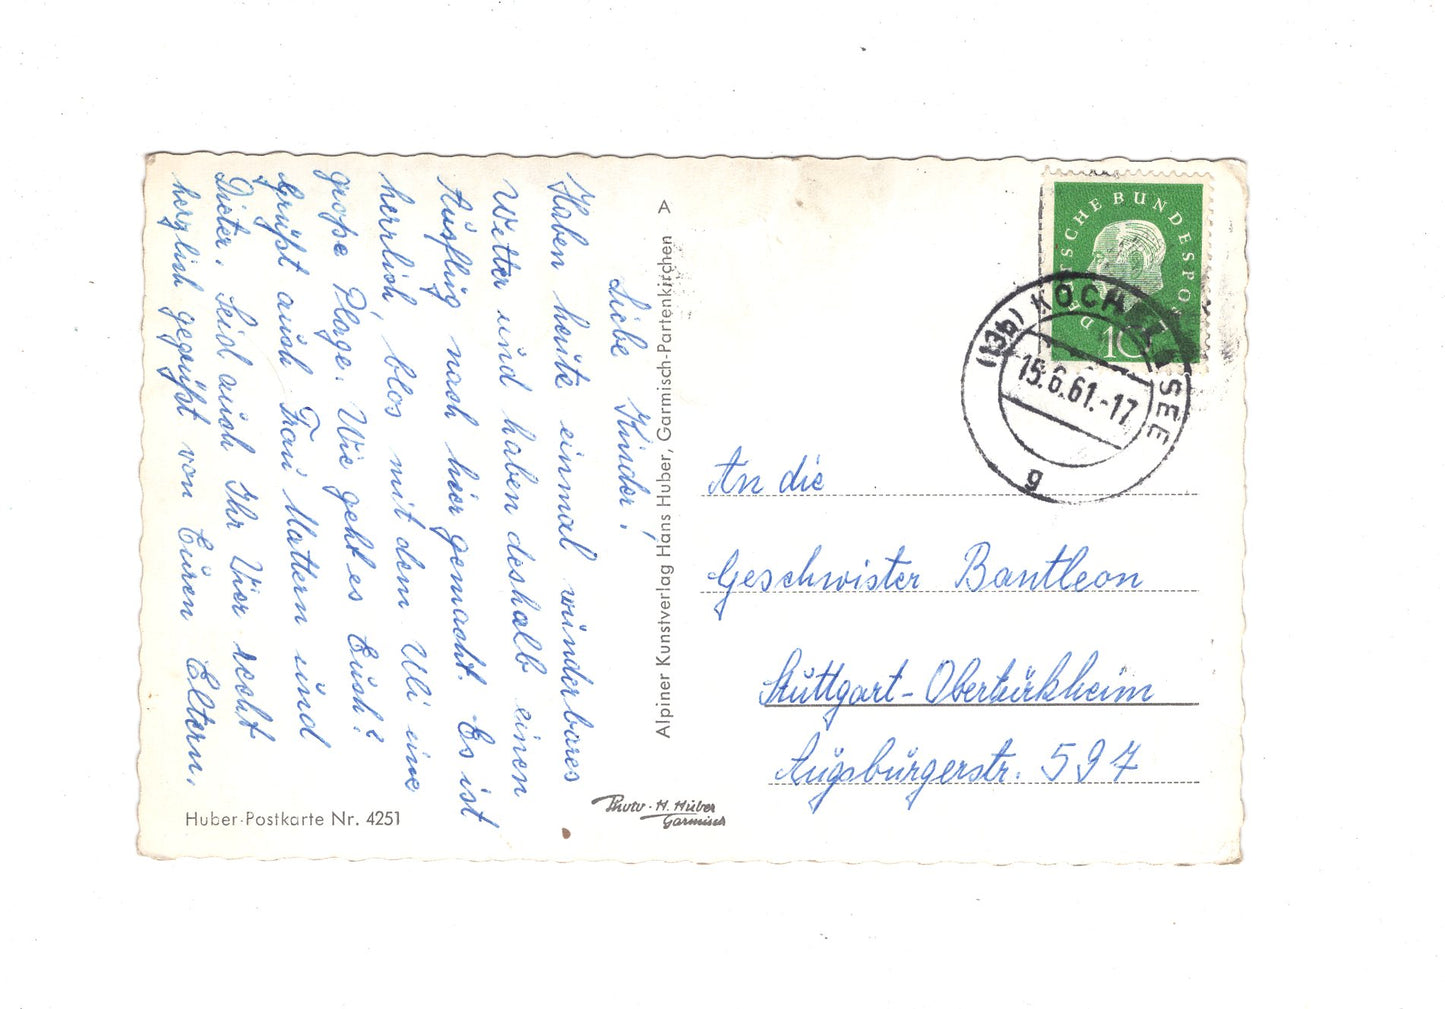 Liebe Kinder!
Haben heute einmal wunderbares
Wetter und haben deshalb einen
Ausflug nach hier gemacht. Es ist
herrlich, blos mit dem Uli eine
große Plage. Wie geht es Euch?
Grüßt auch Frau Mattern und
Dieter. Seid auch Ihr Vier recht
herzlich gegrüßt von Euren Eltern.
Huber-Postkarte Nr. 4251
Alpiner Kunstverlag Hans Huber, Garmisch-Partenkirchen A
Photo-H. Huber
Garmisch
DEUTSCHE BUNDESPOST
10
(13b) KOCHEL SEE
15.6.61.-17
g
An die
Geschwister Bantleon
Stuttgart-Obertürkheim
Augsburgerstr. 597